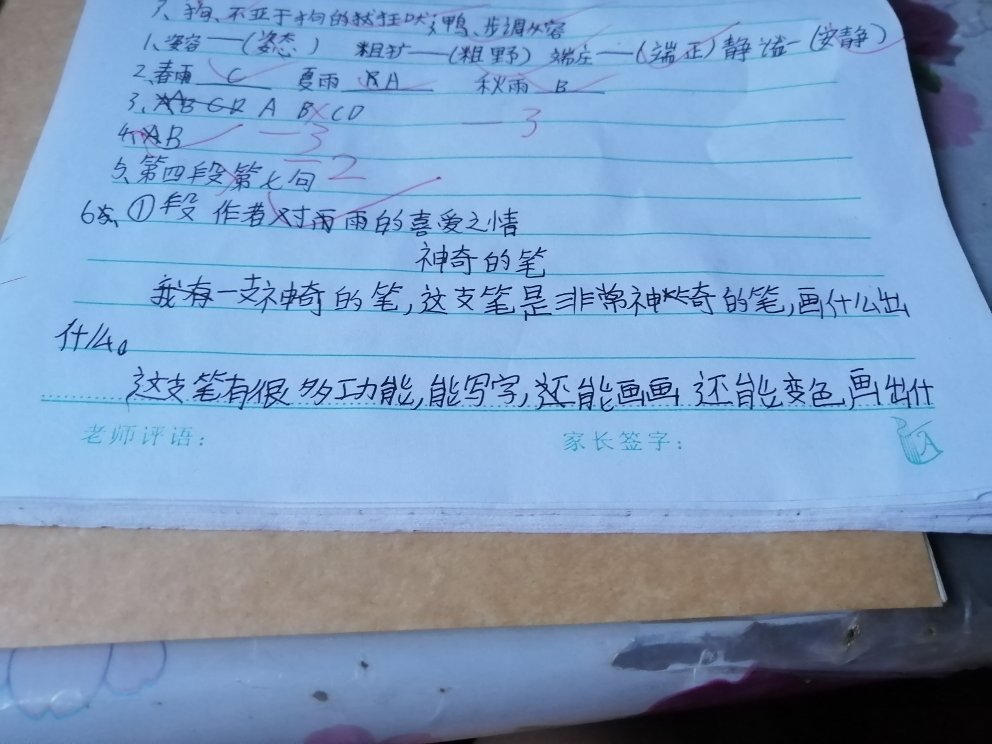 7、狗、不亚于狗的狂吠;鸭、步调从容
1、姿容——(姿态) 粗犷——(粗野) 端庄——(端正) 静谧—(安静)
2、春雨 C 夏雨 A 秋雨 B
3、A B CD
-3
4、B
-3
5、第四段第七句
-2
6、①段 作者对雨的喜爱之情
神奇的笔
我有一支神奇的笔,这支笔是非常神奇的笔,画什么出
什么。
这支笔有很多功能,能写字,还能画画 还能变色,画出什
老师评语: 家长签字: